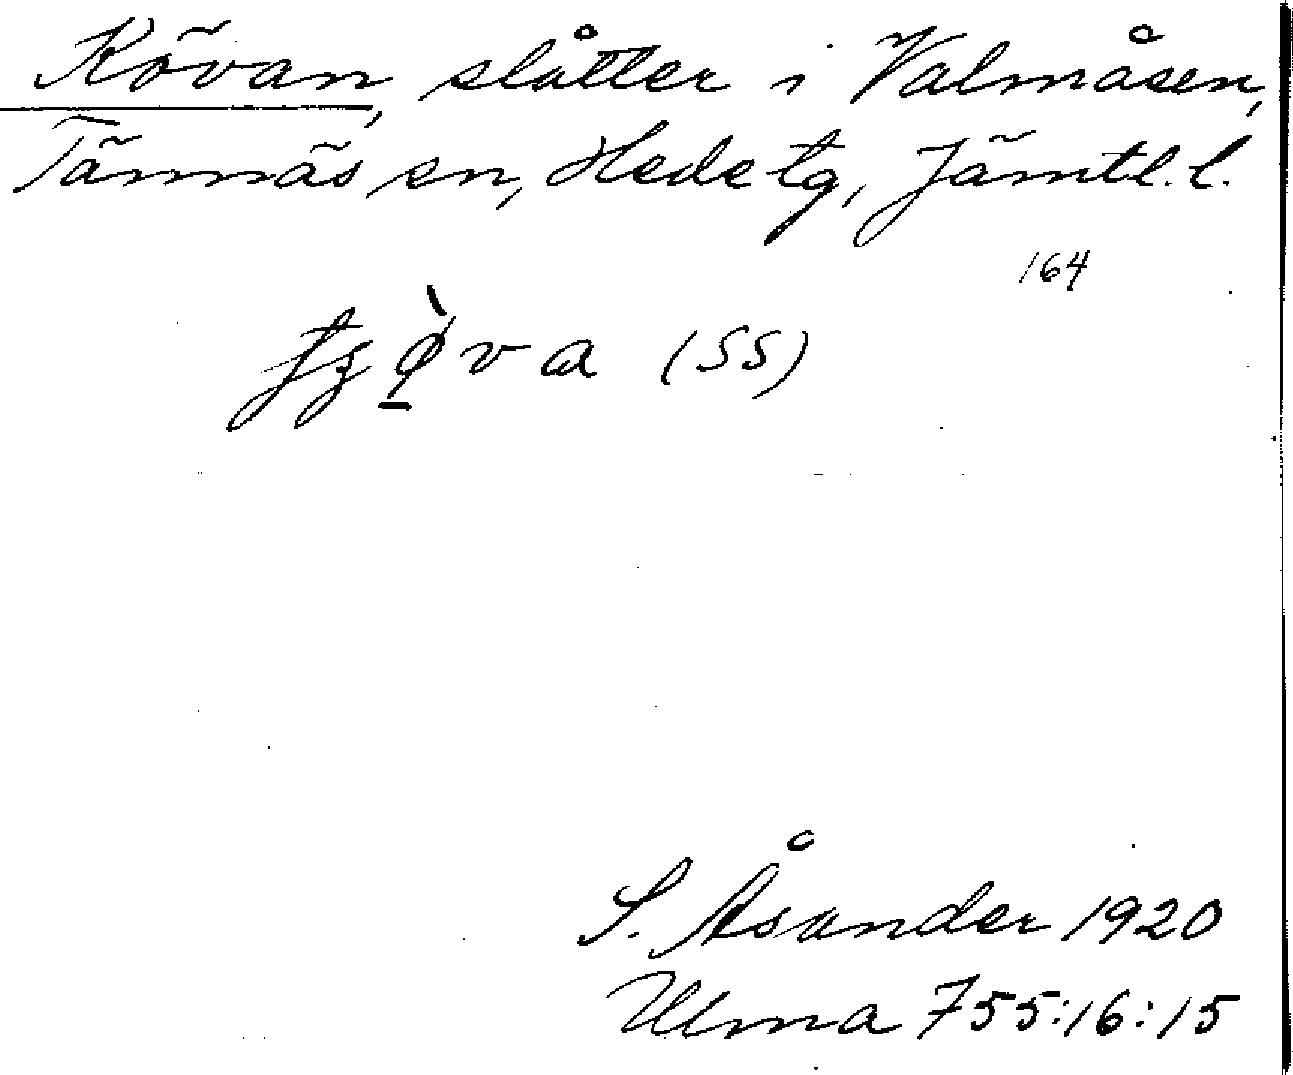 Kövan, slåtter i Valmåsen,
Tännäs sn, Hede tg, Jämtl. l.
164
(SS)
S. Åsander 1920
Ulma 755:16:15